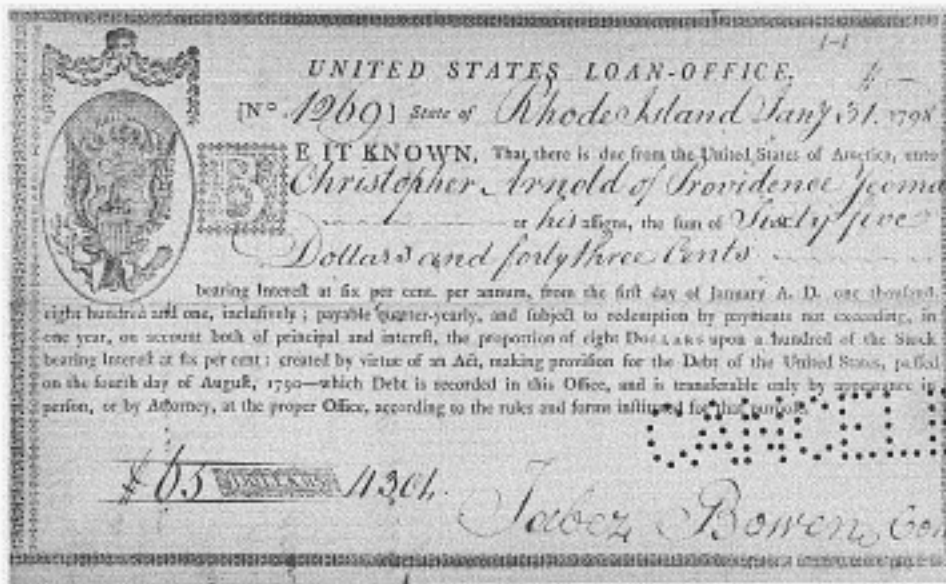 1-1
UNITED STATES LOAN-OFFICE.
[No. 1269] State of Rhode Island Jany 31. 1798
BE IT KNOWN, That there is due from the United States of America, unto
Christopher Arnold of Providence Yeoma
or his assigns, the sum of Sixty five
Dollars and forty three Cents
bearing Interest at six per cent. per annum, from the first day of January A. D. one thousand
eight hundred and one, inclusively; payable quarter-yearly, and subject to redemption by payments not exceeding, in
one year, on account both of principal and interest, the proportion of eight DOLLARS upon a hundred of the Stock
bearing Interest at six per cent; created by virtue of an Act, making provision for the Debt of the United States, passed
on the fourth day of August, 1790—which Debt is recorded in this Office, and is transferable only by appearance in
person, or by Attorney, at the proper Office, according to the rules and forms instituted for that purpose.
CANCELL
$ 65 DOLLARS 43 Cts.
Jabez Bowen Com